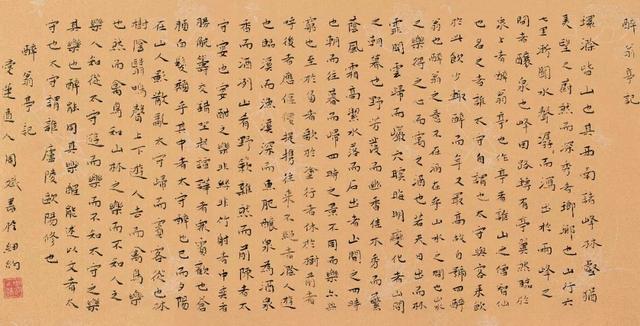 醉翁亭記
環滁皆山也其西南諸峰林壑猶
美望之蔚然而深秀者瑯琊也山行六
七里漸聞水聲潺潺而瀉出於兩峰之
間者釀泉也峰回路轉有亭翼然臨於
泉上者醉翁亭也作亭者誰山之僧智仙
也名之者誰太守自謂也太守與客來飲
於此飲少輒醉而年又最高故自號曰醉
翁也醉翁之意不在酒在乎山水之間也山水
之樂得之心而寓之酒也若夫日出而林
霏開雲歸而巖穴暝晦明變化者山間
之朝暮也野芳發而幽香佳木秀而繁
蔭風霜高潔水落而石出者山間之四時
也朝而往暮而歸四時之景不同而樂亦無
窮也至於負者歌於塗行者休於樹前者
呼後者應傴僂提攜往來不絕者滁人遊
也臨溪而漁溪深而魚肥釀泉為酒泉
香而酒冽山肴野蔌雜然而前陳者太
守宴也宴酣之樂非絲非竹射者中奕者
勝觥籌交錯坐起諠譁者眾賓歡也蒼
顏白髮頹乎其中者太守醉也已而夕陽
在山人影散亂太守歸而賓客從也林
樹陰翳鳴聲上下遊人去而禽鳥樂
也然而禽鳥知山林之樂而不知人之
樂人知從太守遊而樂而不知太守之樂
其樂也醉能同其樂醒能述以文者太
守也太守謂誰廬陵歐陽修也
醉翁亭記
愛蓮道人周斌書於紐約